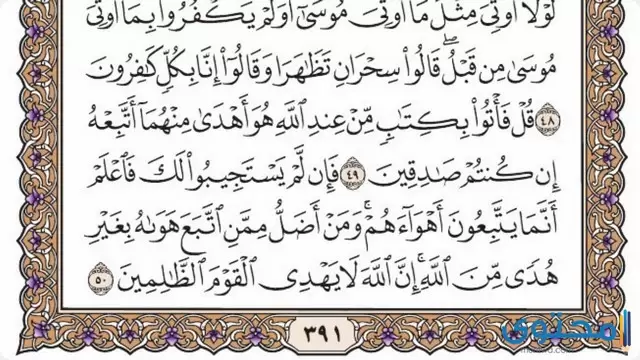 لَوۡلَآ أُوتِيَ مِثۡلَ مَآ أُوتِيَ مُوسَىٰٓۚ أَوَلَمۡ يَكۡفُرُواْ بِمَآ أُوتِيَ
مُوسَىٰ مِن قَبۡلُۖ قَالُواْ سِحۡرَانِ تَظَٰهَرَا وَقَالُوٓاْ إِنَّا بِكُلّٖ كَٰفِرُونَ
٤٨ قُلۡ فَأۡتُواْ بِكِتَٰبٖ مِّنۡ عِندِ ٱللَّهِ هُوَ أَهۡدَىٰ مِنۡهُمَآ أَتَّبِعۡهُ
إِن كُنتُمۡ صَٰدِقِينَ ٤٩ فَإِن لَّمۡ يَسۡتَجِيبُواْ لَكَ فَٱعۡلَمۡ
أَنَّمَا يَتَّبِعُونَ أَهۡوَآءَهُمۡۚ وَمَنۡ أَضَلُّ مِمَّنِ ٱتَّبَعَ هَوَىٰهُ بِغَيۡرِ
هُدٗى مِّنَ ٱللَّهِۚ إِنَّ ٱللَّهَ لَا يَهۡدِي ٱلۡقَوۡمَ ٱلظَّٰلِمِينَ ٥٠
٣٩١
المحتوى